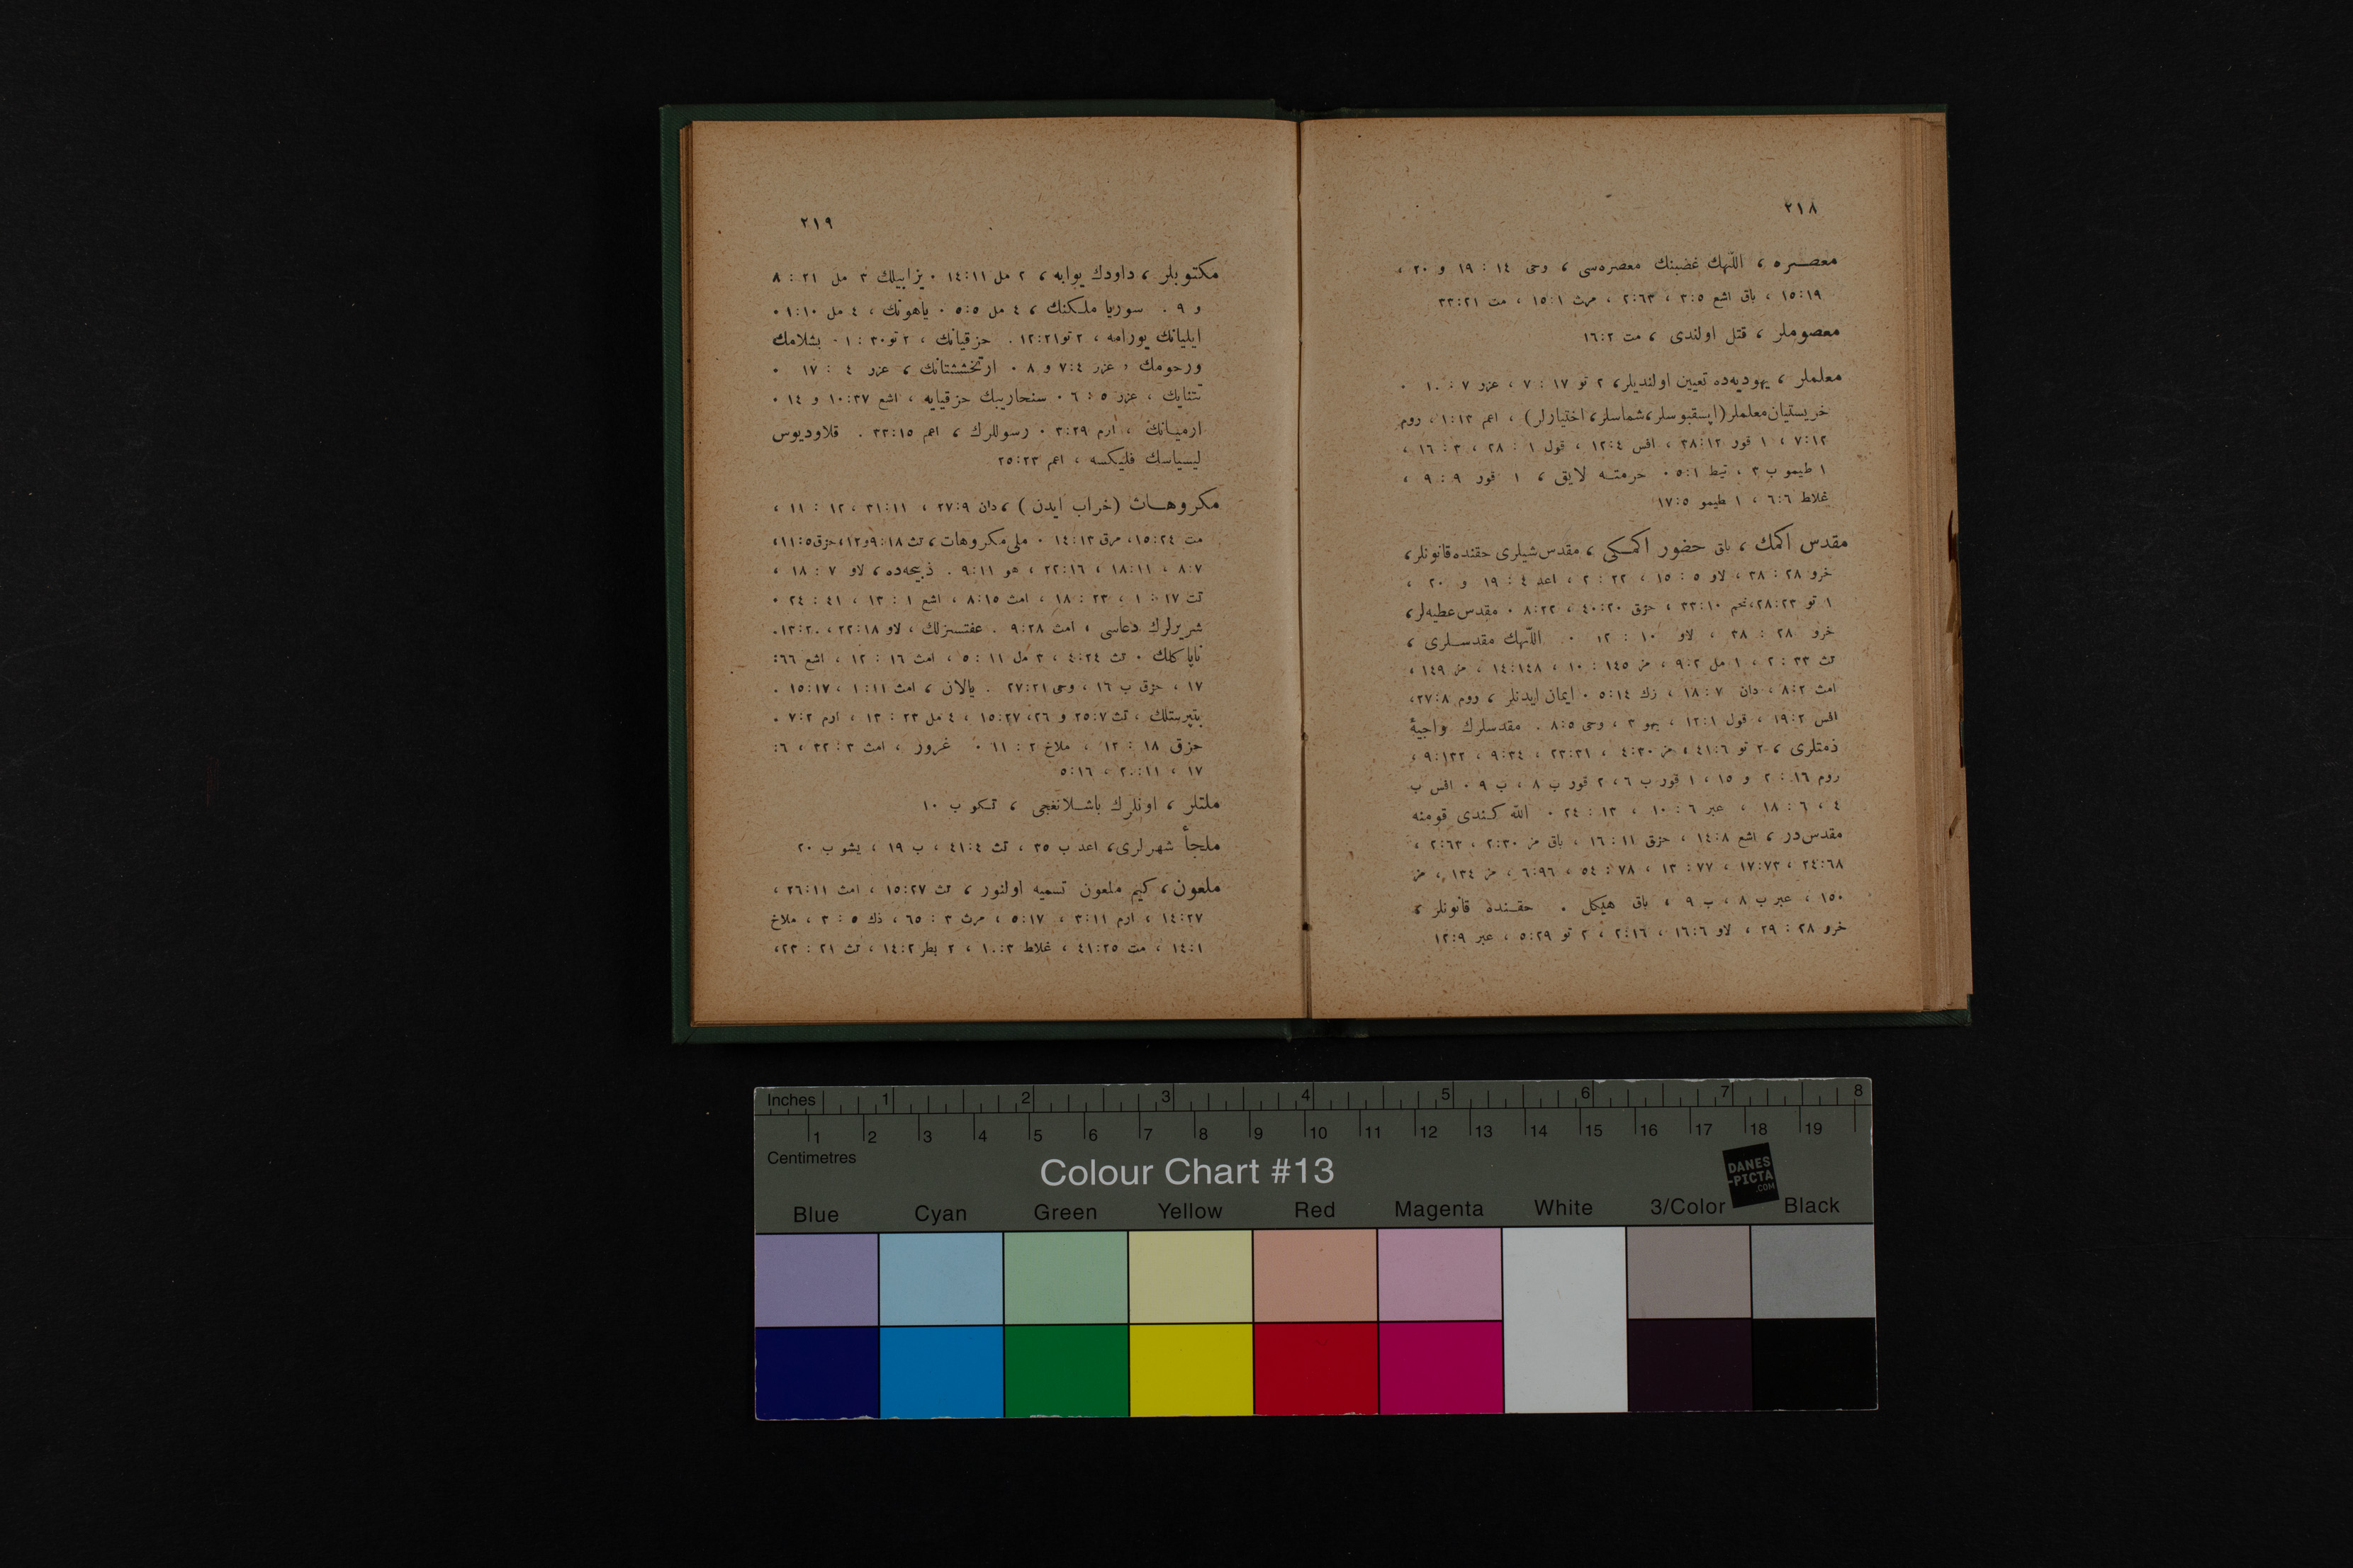 ٢١٨
معصره ، اللّٰهك غضبنك معصره‌سی ، وحی ١٤ : ١٩ و ٢٠ ،
١٥:١٩ ، باق اشع ٣:٥ ، ٢:٦٣ ، مرث ١٥:١ ، مت ٣٣:٢١
معصوملر ، قتل اولندی ، مت ١٦:٢
معلملر ، یهودیه‌ده تعیین اولندیلر ، ٢ تو ١٧ : ٧ ، عزر ٧ : ١٠ ٠
خریستیان معلملر (اپسقبوسلر ، شماسلر ، اختیارلر) ، اعم ١:١٣ ، روم
٧:١٢ ، ١ قور ٢٨:١٢ ، افس ١٢:٤ ، قول ١ : ٢٨ ، ٣ : ١٦ ،
١ طیمو ب ٣ ، تیط ٥:١ ٠ حرمته لایق ، ١ قور ٩ : ٩ ،
غلاط ٦:٦ ، ١ طیمو ١٧:٥
مقدس اكمك ، باق حضور اكمكی ، مقدس شیلری حقنده قانونلر ،
خرو ٢٨ : ٣٨ ، لاو ٥ : ١٥ ، ٢٢ : ٢ ، اعد ٤ : ١٩ و ٢٠ ،
١ تو ٢٨:٢٣ ، نحم ٣٣:١٠ ، حزق ٤٠:٢٠ ، ٨:٢٢ ٠ مقدس عطیه‌لر ،
خرو ٢٨ : ٣٨ ، لاو ١٠ : ١٢ ٠ اللّٰهك مقدسلری ،
تث ٣٣ : ٢ ، ١ مل ٩:٢ ، مز ١٤٥ : ١٠ ، ١٤:١٤٨ ، مز ١٤٩ ،
امث ٨:٢ ، دان ٧ : ١٨ ، زك ٥:١٤ ٠ ایمان ایدنلر ، روم ٢٧:٨ ،
افس ١٩:٢ ، قول ١٢:١ ، یهو ٣ ، وحی ٨:٥ . مقدسلرك واجبهٔ
ذمتلری ، ٢ تو ٤١:٦ ، مز ٤:٣٠ ، ٢٣:٣١ ، ٩:٣٤ ، ٩:١٣٢ ،
روم ١٦ : ٢ و ١٥ ، ١ قور ب ٦ ، ٢ قور ب ٨ ، ب ٩ ٠ افس ب
٤ ، ٦ : ١٨ ، عبر ٦ : ١٠ ، ١٣ : ٢٤ ٠ اللّٰه كندی قومنه
مقدس در ، اشع ١٤:٨ ، حزق ١١ : ١٦ ، باق مز ٢:٣٠ ، ٢:٦٣ ،
٢٤:٦٨ ، ١٧:٧٣ ، ٧٧ : ١٣ ، ٧٨ : ٥٤ ، ٦:٩٦ ، مز ١٣٤ ، مز
١٥٠ ، عبر ب ٨ ، ب ٩ ، باق هیكل . حقنده قانونلر ،
خرو ٢٨ : ٢٩ ، لاو ١٦:٦ ، ٢:١٦ ، ٢ تو ٥:٢٩ ، عبر ١٢:٩
٢١٩
مكتوبلر ، داودك یوابه ، ٢ مل ١٤:١١ ٠ یزابیلك ٣ مل ٢١ : ٨
و ٩ . سوریا ملكنك ، ٤ مل ٥:٥ ٠ یاهونك ، ٤ مل ١:١٠ ٠
ایلیانك یورامه ، ٢ تو ١٢:٢١ . حزقیانك ، ٢ تو ٣٠ : ١ ٠ بشلامك
ورحومك ، عزر ٧:٤ و ٨ ٠ ارتخششتانك ، عزر ٤ : ١٧ ٠
تتنایك ، عزر ٥ : ٦ ٠ سنحاریبك حزقیایه ، اشع ١٠:٣٧ و ١٤ ٠
ارمیانك ، ارم ٣:٢٩ ٠ رسوللرك ، اعم ٢٣:١٥ . قلاودیوس
لیسیاسك فلیكسه ، اعم ٢٥:٢٣
مكروهات (خراب ایدن) ، دان ٢٧:٩ ، ٣١:١١ ، ١٢ : ١١ ،
مت ١٥:٢٤ ، مرق ١٤:١٣ ٠ ملی مكروهات ، تث ٩:١٨ و ١٢ ، حزق ١١:٥ ،
٨:٧ ، ١٨:١١ ، ٢٢:١٦ ، هو ٩:١١ . ذبیحه‌ده ، لاو ٧ : ١٨ ،
تث ١٧ : ١ ، ٢٣ : ١٨ ، امث ٨:١٥ ، اشع ١ : ١٣ ، ٤١ : ٢٤ ٠
شریرلرك دعاسی ، امث ٩:٢٨ . عفتسزلك ، لاو ٢٢:١٨ ، ١٣:٢٠ .
ناپاكلك ٠ تث ٤:٢٤ ، ٣ مل ١١ : ٥ ، امث ١٦ : ١٢ ، اشع ٦٦ :
١٧ ، حزق ب ١٦ ، وحی ٢٧:٢١ . یالان ، امث ١:١١ ، ١٥:١٧ .
بتپرستلك ، تث ٢٥:٧ و ٢٦ ، ١٥:٢٧ ، ٤ مل ٢٣ : ١٣ ، ارم ٧:٢ .
حزق ١٨ : ١٢ ، ملاخ ٢ : ١١ ٠ غرور ، امث ٣ : ٣٢ ، ٦ :
١٧ ، ٢٠:١١ ، ٥:١٦
ملتلر ، اونلرك باشلانغجی ، تكو ب ١٠
ملجأ شهرلری ، اعد ب ٣٥ ، تث ٤١:٤ ، ب ١٩ ، یشو ب ٢٠
ملعون ، كیم ملعون تسمیه اولنور ، تث ١٥:٢٧ ، امث ٢٦:١١ ،
١٤:٢٧ ، ارم ٣:١١ ، ٥:١٧ ، مرث ٣ : ٦٥ ، ذك ٥ : ٣ ، ملاخ
١٤:١ ، مت ٤١:٢٥ ، غلاط ١٠:٣ ، ٢ بطر ١٤:٢ ، تث ٢١ : ٢٣ ،
Inches 1 2 3 4 5 6 7 8
1 2 3 4 5 6 7 8 9 10 11 12 13 14 15 16 17 18 19
Centimetres
Colour Chart #13
DANES
-PICTA
.COM
Blue Cyan Green Yellow Red Magenta White 3/Color Black